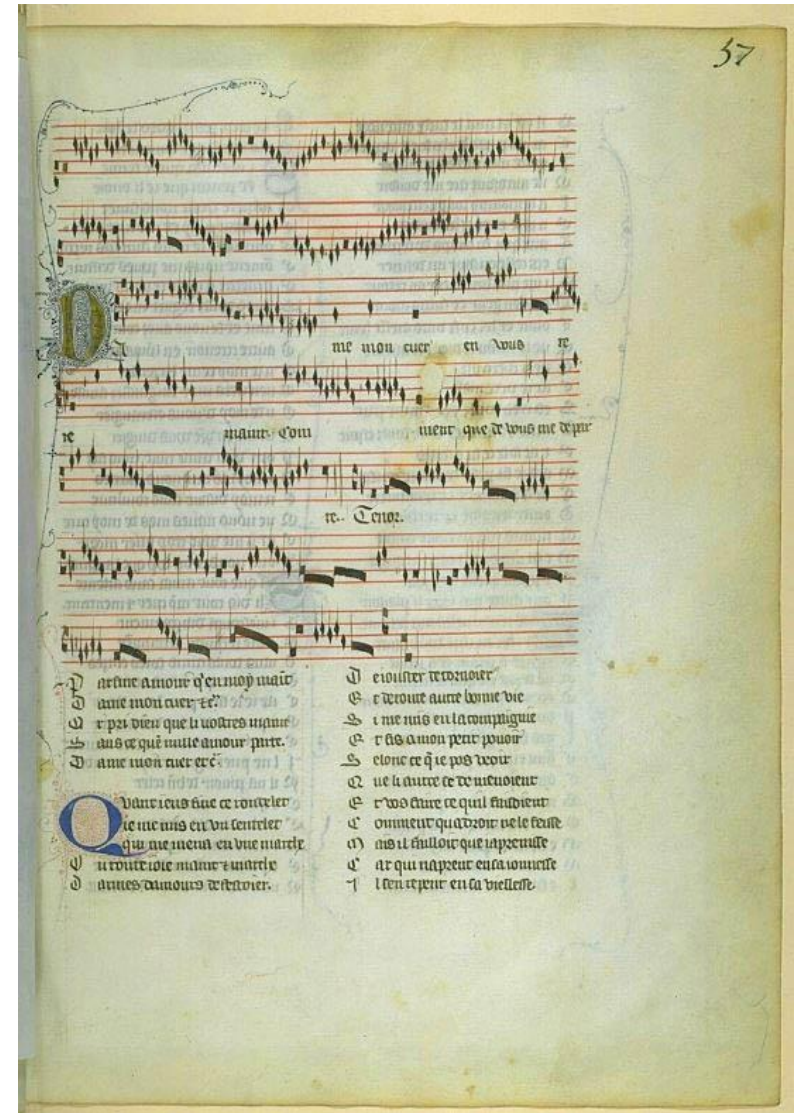 57
Dame mon cuer en vous re
re maint. Com ment que de vous me depar
te. Tenor.
Par fine amour q'en moy maint
Dame mon cuer etc.
Et pri dieu que li vostres maint
Sans ce que nulle amour parte.
Dame mon cuer etc.
Quant ieus fine ce rondelet
Ie me mis en un sentelet
qui me mena en une marche
U toute ioie maint et marche
Darmes damours
De iouster de tornoier
Et de toute autre bonne vie
Si me mis en la compaignie
Et fis a mon petit pouoir
Selonc ce q ie pos veoir
Que li autre de menoient
Et vos faire ce quil faisoient
Comment qua droit ne le feisse
Mais il falloit que iapreisse
Car qui naprent en sa ionnesse
Il sen repent en sa viellesse.